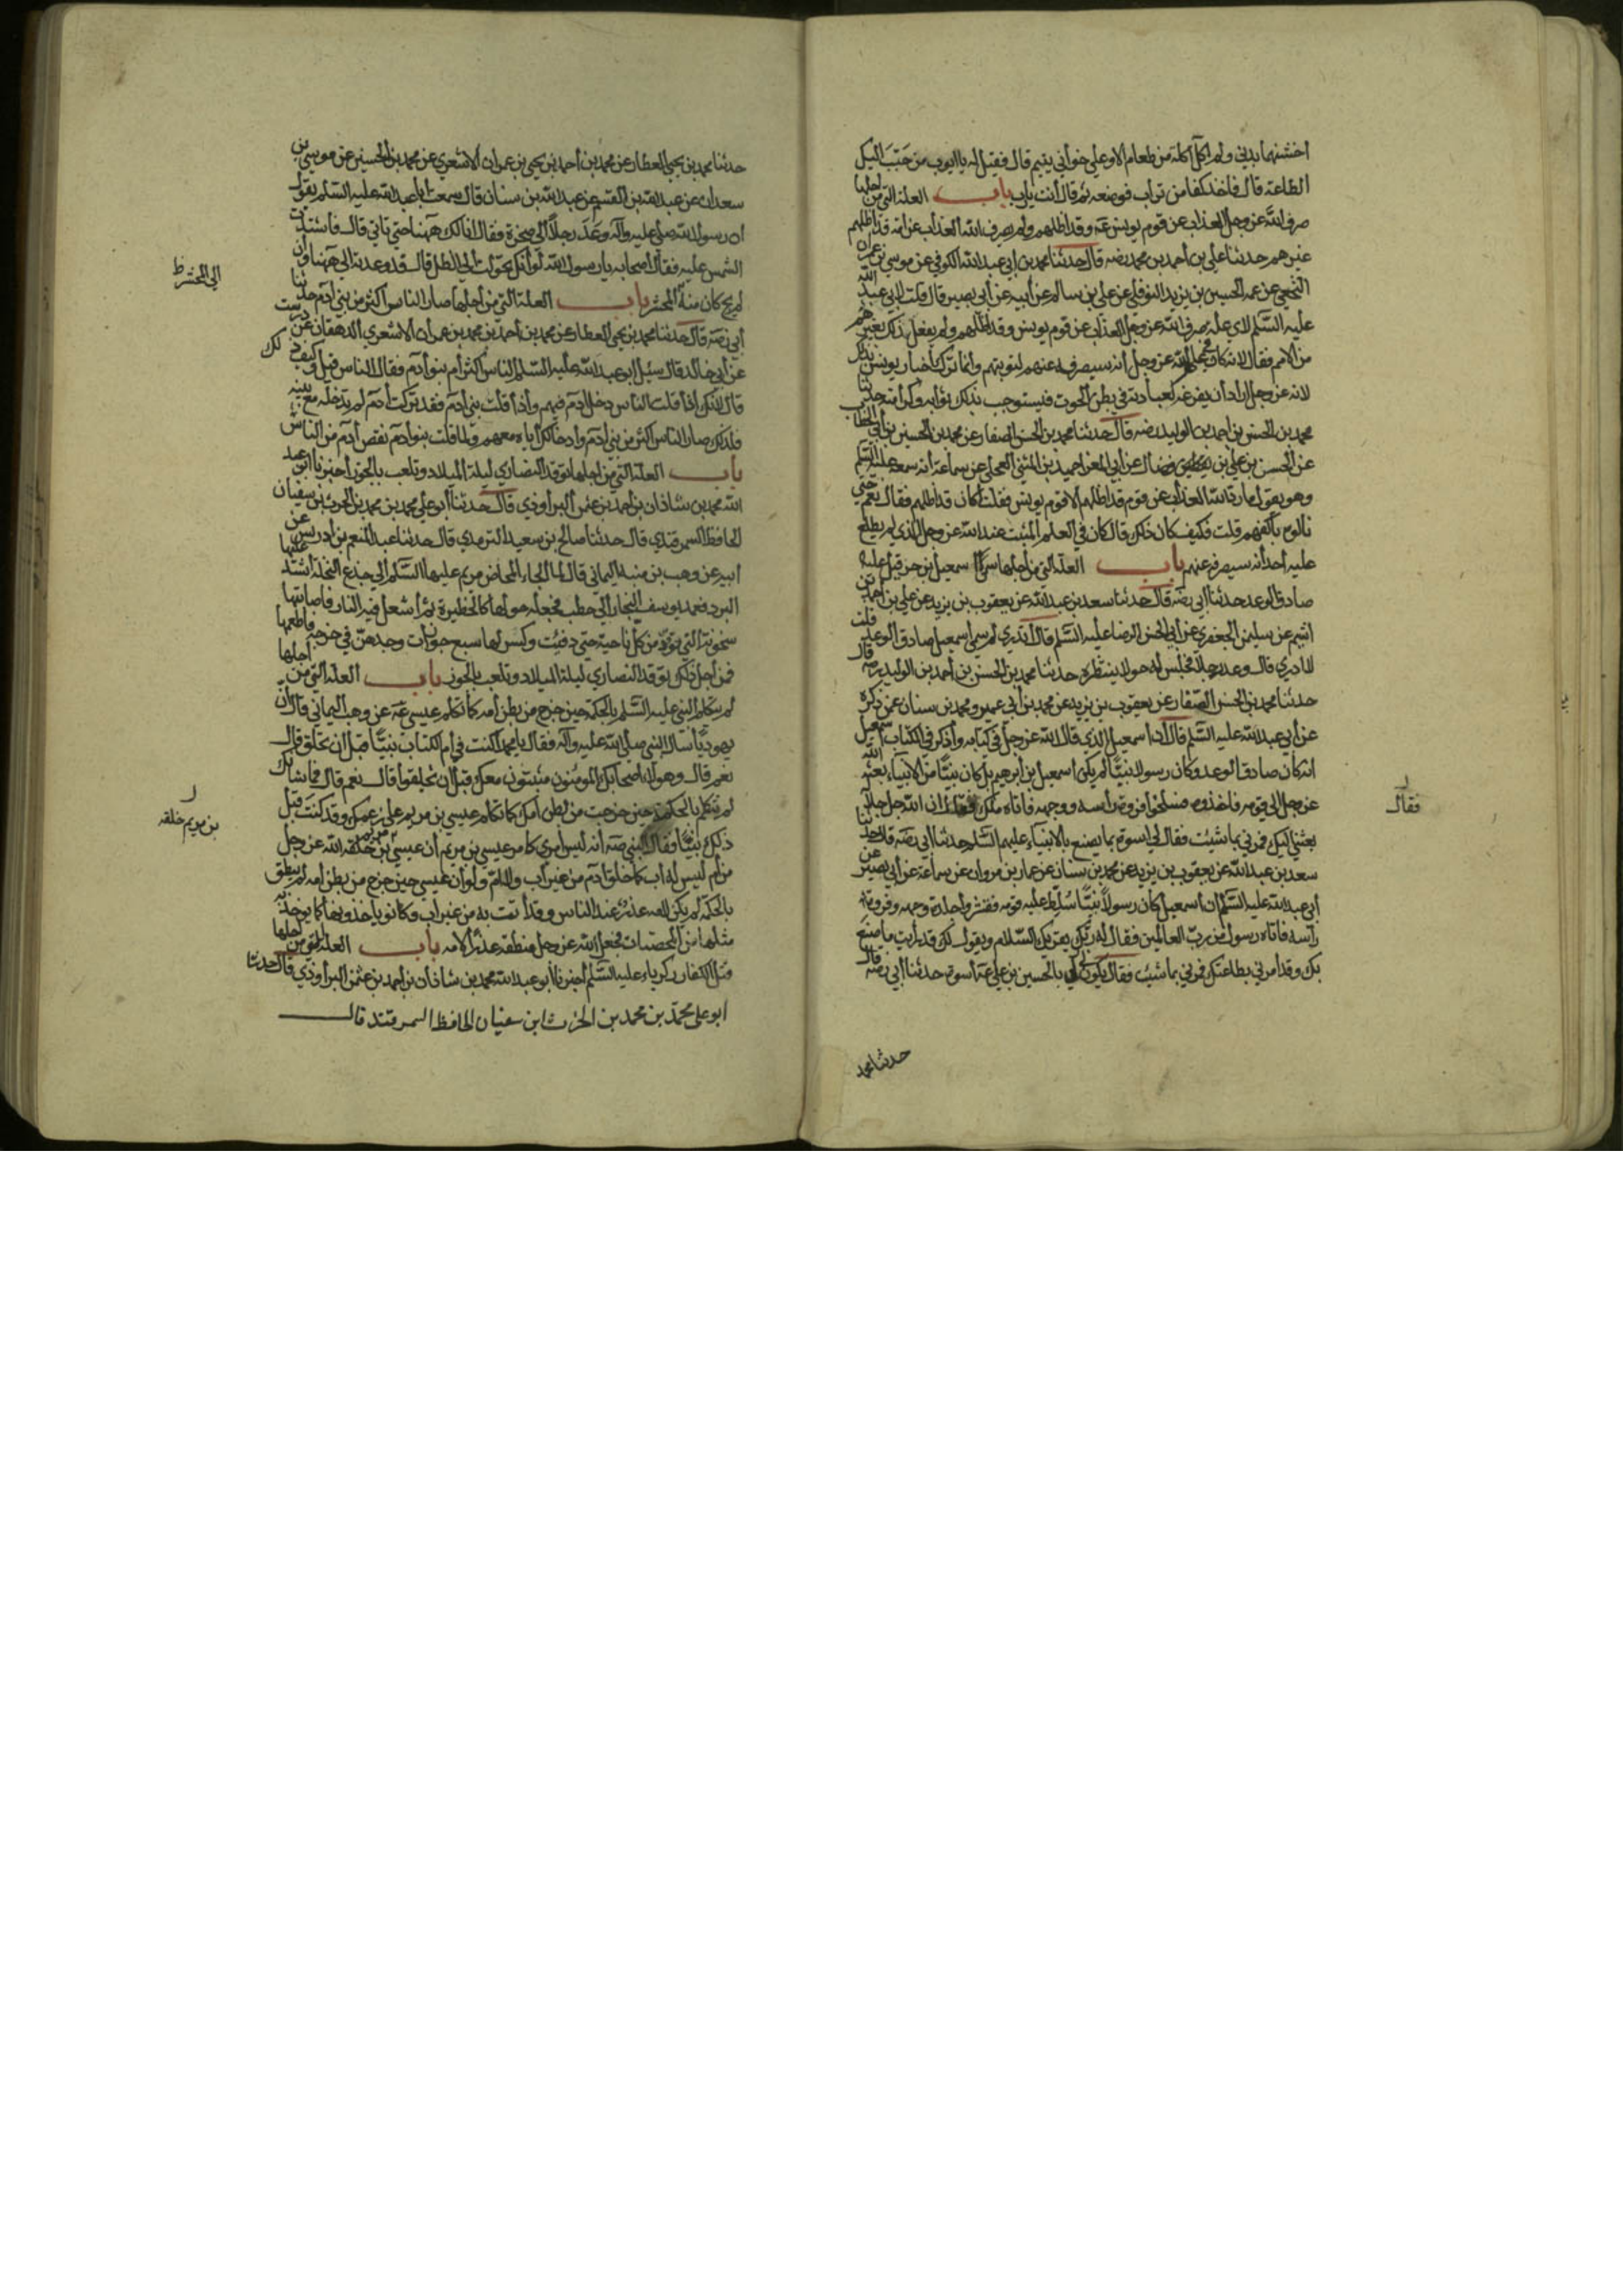 اخشنهما بدني ولم اكل اكلة من طعام الا وعلي خواني يتيم قال فقيل له يا ايوب من حبّب اليك
الطاعة قال فاخذ كفا من تراب فوضعه ثم قال أنت يا رب باب العلة التي من اجلها
صرف الله عز وجل العذاب عن قوم يونس عه وقد اظلهم ولم يصرف الله العذاب عن امة قد اظلهم
غيرهم حدثنا علي بن أحمد بن محمد رضه قال حدثنا محمد بن ابي عبد الله الكوفي عن موسي بن عمران
النخعي عن عمه الحسين بن يزيد النوفلي عن علي بن سالم عن أبيه عن أبي بصير قال قلت لابي عبد الله
عليه السّلم لاي علة صرف الله عز وجل العذاب عن قوم يونس وقد اظلهم ولم يفعل ذلك بغيرهم
من الامم فقال لانه كان في علم الله عز وجل أنه سيصرفه عنهم لتوبتهم وانما ترك اخبار يونس بذلك
لانه عز وجل اراد أن يفرغه لعبادته في بطن الحوت فيستوجب بذلك ثوابه وكرامته حدثنا
محمد بن الحسن بن احمد بن الوليد رضه قال حدثنا محمد بن الحسن الصفار عن محمد بن الحسين بن أبي الخطاب
عن الحسن بن علي بن فضال عن أبي المغرا حميد بن المثني العجلي عن سماعة أنه سمعه عليه السّلم
وهو يقول ما رد الله العذاب عن قوم قد اظلهم الا قوم يونس فقلت أكان قد اظلهم فقال نعم حتي
نالوه بأكفهم قلت فكيف كان ذلك قال كان في العلم المثبت عند الله عز وجل الذي لم يطلع
عليه احد أنه سيصرفه عنهم باب العلة التي من أجلها سمي اسمعيل بن حزقيل عليه
صادق الوعد حدثنا ابي رضه قال حدثنا سعد بن عبد الله عن يعقوب بن يزيد عن علي بن احمد بن
اشيم عن سليمن الجعفري عن أبي الحسن الرضا عليه السّلم قال أتدري لم سمي اسمعيل صادق الوعد قلت
لا ادري قال وعد رجلا فجلس له حولا ينتظره حدثنا محمد بن الحسن بن أحمد بن الوليد رضه قال
حدثنا محمد بن الحسن الصفار عن يعقوب بن يزيد عن محمد بن أبي عمير ومحمد بن سنان عمن ذكره
عن أبي عبد الله عليه السّلم قال ان اسمعيل الذي قال الله عز وجل في كتابه واذكر في الكتاب اسمعيل
انه كان صادق الوعد وكان رسولا نبيّا لم يكن اسمعيل بن ابرهيم بل كان نبيّا من الانبياء بعثه الله
عز وجل الي قومه فاخذوه فسلخوا فروة رأسه ووجهه فاتاه ملك فقال ان الله جل جلاله
بعثني اليك فمرني بما شيت فقال لي اسوة بما يصنع بالانبياء عليهم السّلم حدثنا ابي رضه قال حدثنا
سعد بن عبد الله عن يعقوب بن يزيد عن محمد بن سنان عن عمار بن مروان عن سماعة عن أبي بصير عن
أبي عبد الله عليه السّلم ان اسمعيل كان رسولاً نبيّاً سُلّط عليه قومه فقشروا جلدة وجهه وفروة
رأسه فاتاه رسول من ربّ العالمين فقال له ربّك يقريك السّلام ويقول لك قد رأيت ما صنع
بك وقد امرني بطاعتك فمرني بما شيت فقال يكون لي بالحسين بن علي عه اسوة حدثنا ابي رضه قال
حدثنا محمد
فقال
حدثنا محمد بن يحيي العطار عن محمد بن أحمد بن يحيي بن عمران الاشعري عن محمد بن الحسين عن موسي بن
سعدان عن عبد الله بن القسم عن عبد الله بن سنان قال سمعت أبا عبد الله عليه السّلم يقول
ان رسول الله صلي الله عليه وآله وَعَدَ رجلاً الي صخرة فقال انا لك ههنا حتي تاتي قال فاشتدت
الشمس عليه فقال اصحابه يا رسول الله لو أنك تحولت الي الظل قال قد وعدته الي ههنا وان
لم يجئ كان منه المحشر باب العلة التي من اجلها صار الناس أكثر من بني آدم حدثنا
أبي رضه قال حدثنا محمد بن يحيي العطار عن محمد بن أحمد بن محمد بن عمران الاشعري الدهقان عن درست
عن أبي خالد قال سئل أبو عبد الله عليه السّلم الناس أكثر أم بنو آدم فقال الناس قيل وكيف ذلك
قال لانك اذا قلت الناس دخل آدم فيهم واذا قلت بني آدم فقد تركت آدم لم تدخله مع بنيه
فلذلك صار الناس اكثر من بني آدم وادخالك أياه معهم ولما قلت بنو آدم نقص آدم من الناس
باب العلة التي من اجلها توقد النصاري ليلة الميلاد وتلعب بالجوز أخبرنا ابو عبد
الله محمد بن شاذان بن احمد بن عثمن البراوذي قال حدثنا أبو علي محمد بن محمد بن الحرث بن سفيان
الحافظ السمرقندي قال حدثنا صالح بن سعيد الترمدي قال حدثنا عبد المنعم بن ادريس عن
ابيه عن وهب بن منبه اليماني قال لما الجاء المخاض مريم عليها السّلم الي جذع النخلة اشتد عليها
البرد فعمد يوسف النجار الي حطب فجعله حولها كالحظيرة ثم أشعل فيه النار فاصابتها
سخونة التي توقد من كل ناحية حتي دفئت وكسر لها سبع جوزات وجدهن في خرجه فاطعمها
فمن أجل ذلك توقد النصاري ليلة الميلاد وتلعب بالجوز باب العلة التي من اجلها
لم يتكلم النبي عليه السّلم بالحكمة حين خرج من بطن أمه كما تكلم عيسي عه عن وهب اليماني قال ان
يهوديّا سال النبي صلي الله عليه وآله فقال يا محمد اكنت في ام الكتاب نبيّا قبل ان تخلق قال
نعم قال وهولاء اصحابك المومنون مثبتون معك قبل ان يخلقوا قال نعم قال فما شانك
لم تتكلم بالحكمة حين خرجت من بطن أمك كما تكلم عيسي بن مريم علي زعمك وقد كنت قبل
ذلك نبيّا فقال النبي صه أنه ليس أمري كامر عيسي بن مريم أن عيسي بن مريم خلقه الله عز وجل
من أم ليس له أب كما خلق آدم من غير أب ولا ام ولو أن عيسي حين خرج من بطن امه لم ينطق
بالحكمة لم يكن لامه عذر عند الناس وقد أتت به من غير اب وكانوا ياخذونها كما يوخذ به
مثلها من المحصنات فجعل الله عز وجل منطقه عذرا لامه باب العلة التي من اجلها
قتل الكفار زكرياء عليه السّلم أخبرنا أبو عبد الله محمد بن شاذان بن احمد بن عثمن البراوذي قال حدثنا
ابو علي محمّد بن محمد بن الحرث ابن سفيان الحافظ السمرقندي قال
الي المحشر ظ
بن مريم خلقه